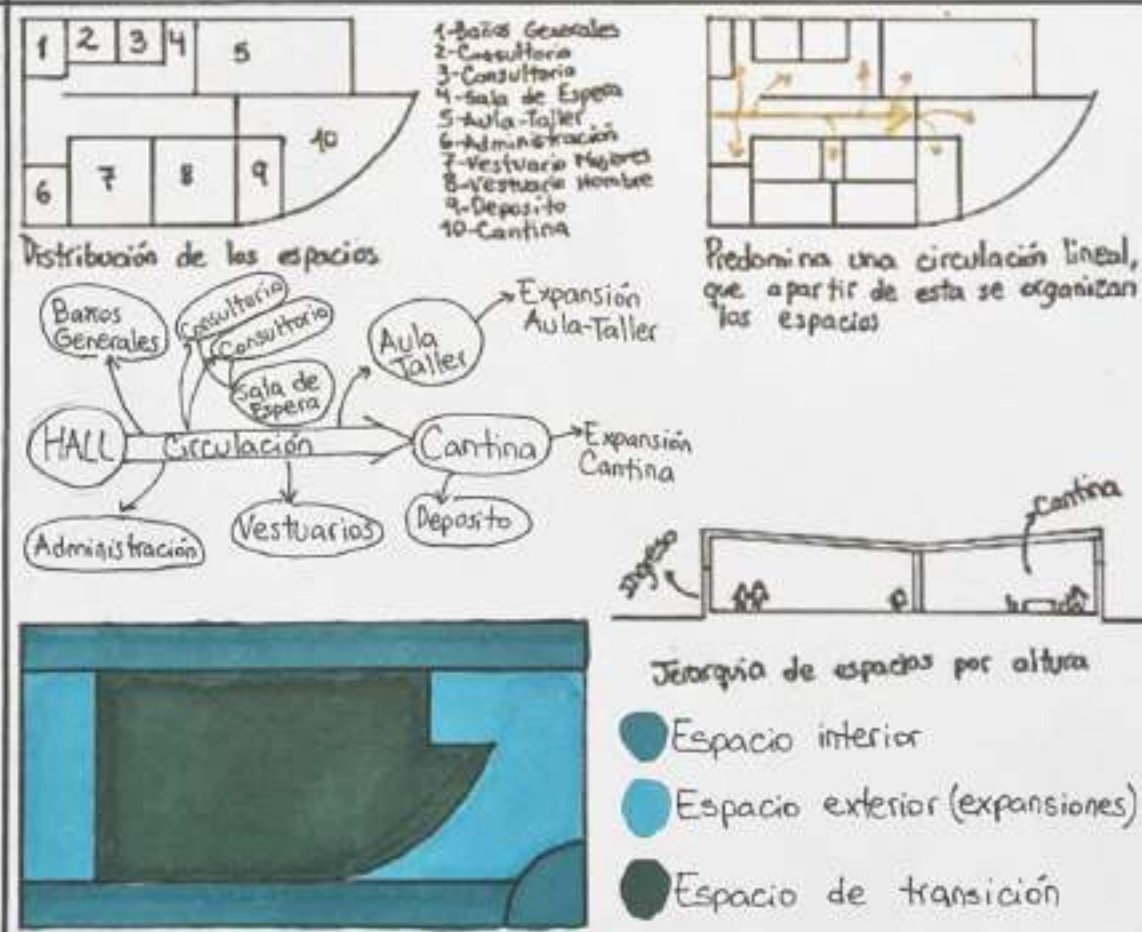 1 2 3 4 5
6 7 8 9 10
1-Baños Generales
2-Consultorio
3-Consultorio
4-Sala de Espera
5-Aula-Taller
6-Administración
7-Vestuario Mujeres
8-Vestuario Hombre
9-Deposito
10-Cantina
Distribución de los espacios
Predomina una circulación lineal,
que apartir de esta se organizan
los espacios
Baños
Generales
Consultorio
Consultorio
Sala de
Espera
Aula
Taller
Expansión
Aula-Taller
HALL
Circulación
Cantina
Expansión
Cantina
Administración
Vestuarios
Deposito
Ingreso
Cantina
Jerarquia de espacios por altura
Espacio interior
Espacio exterior (expansiones)
Espacio de transición